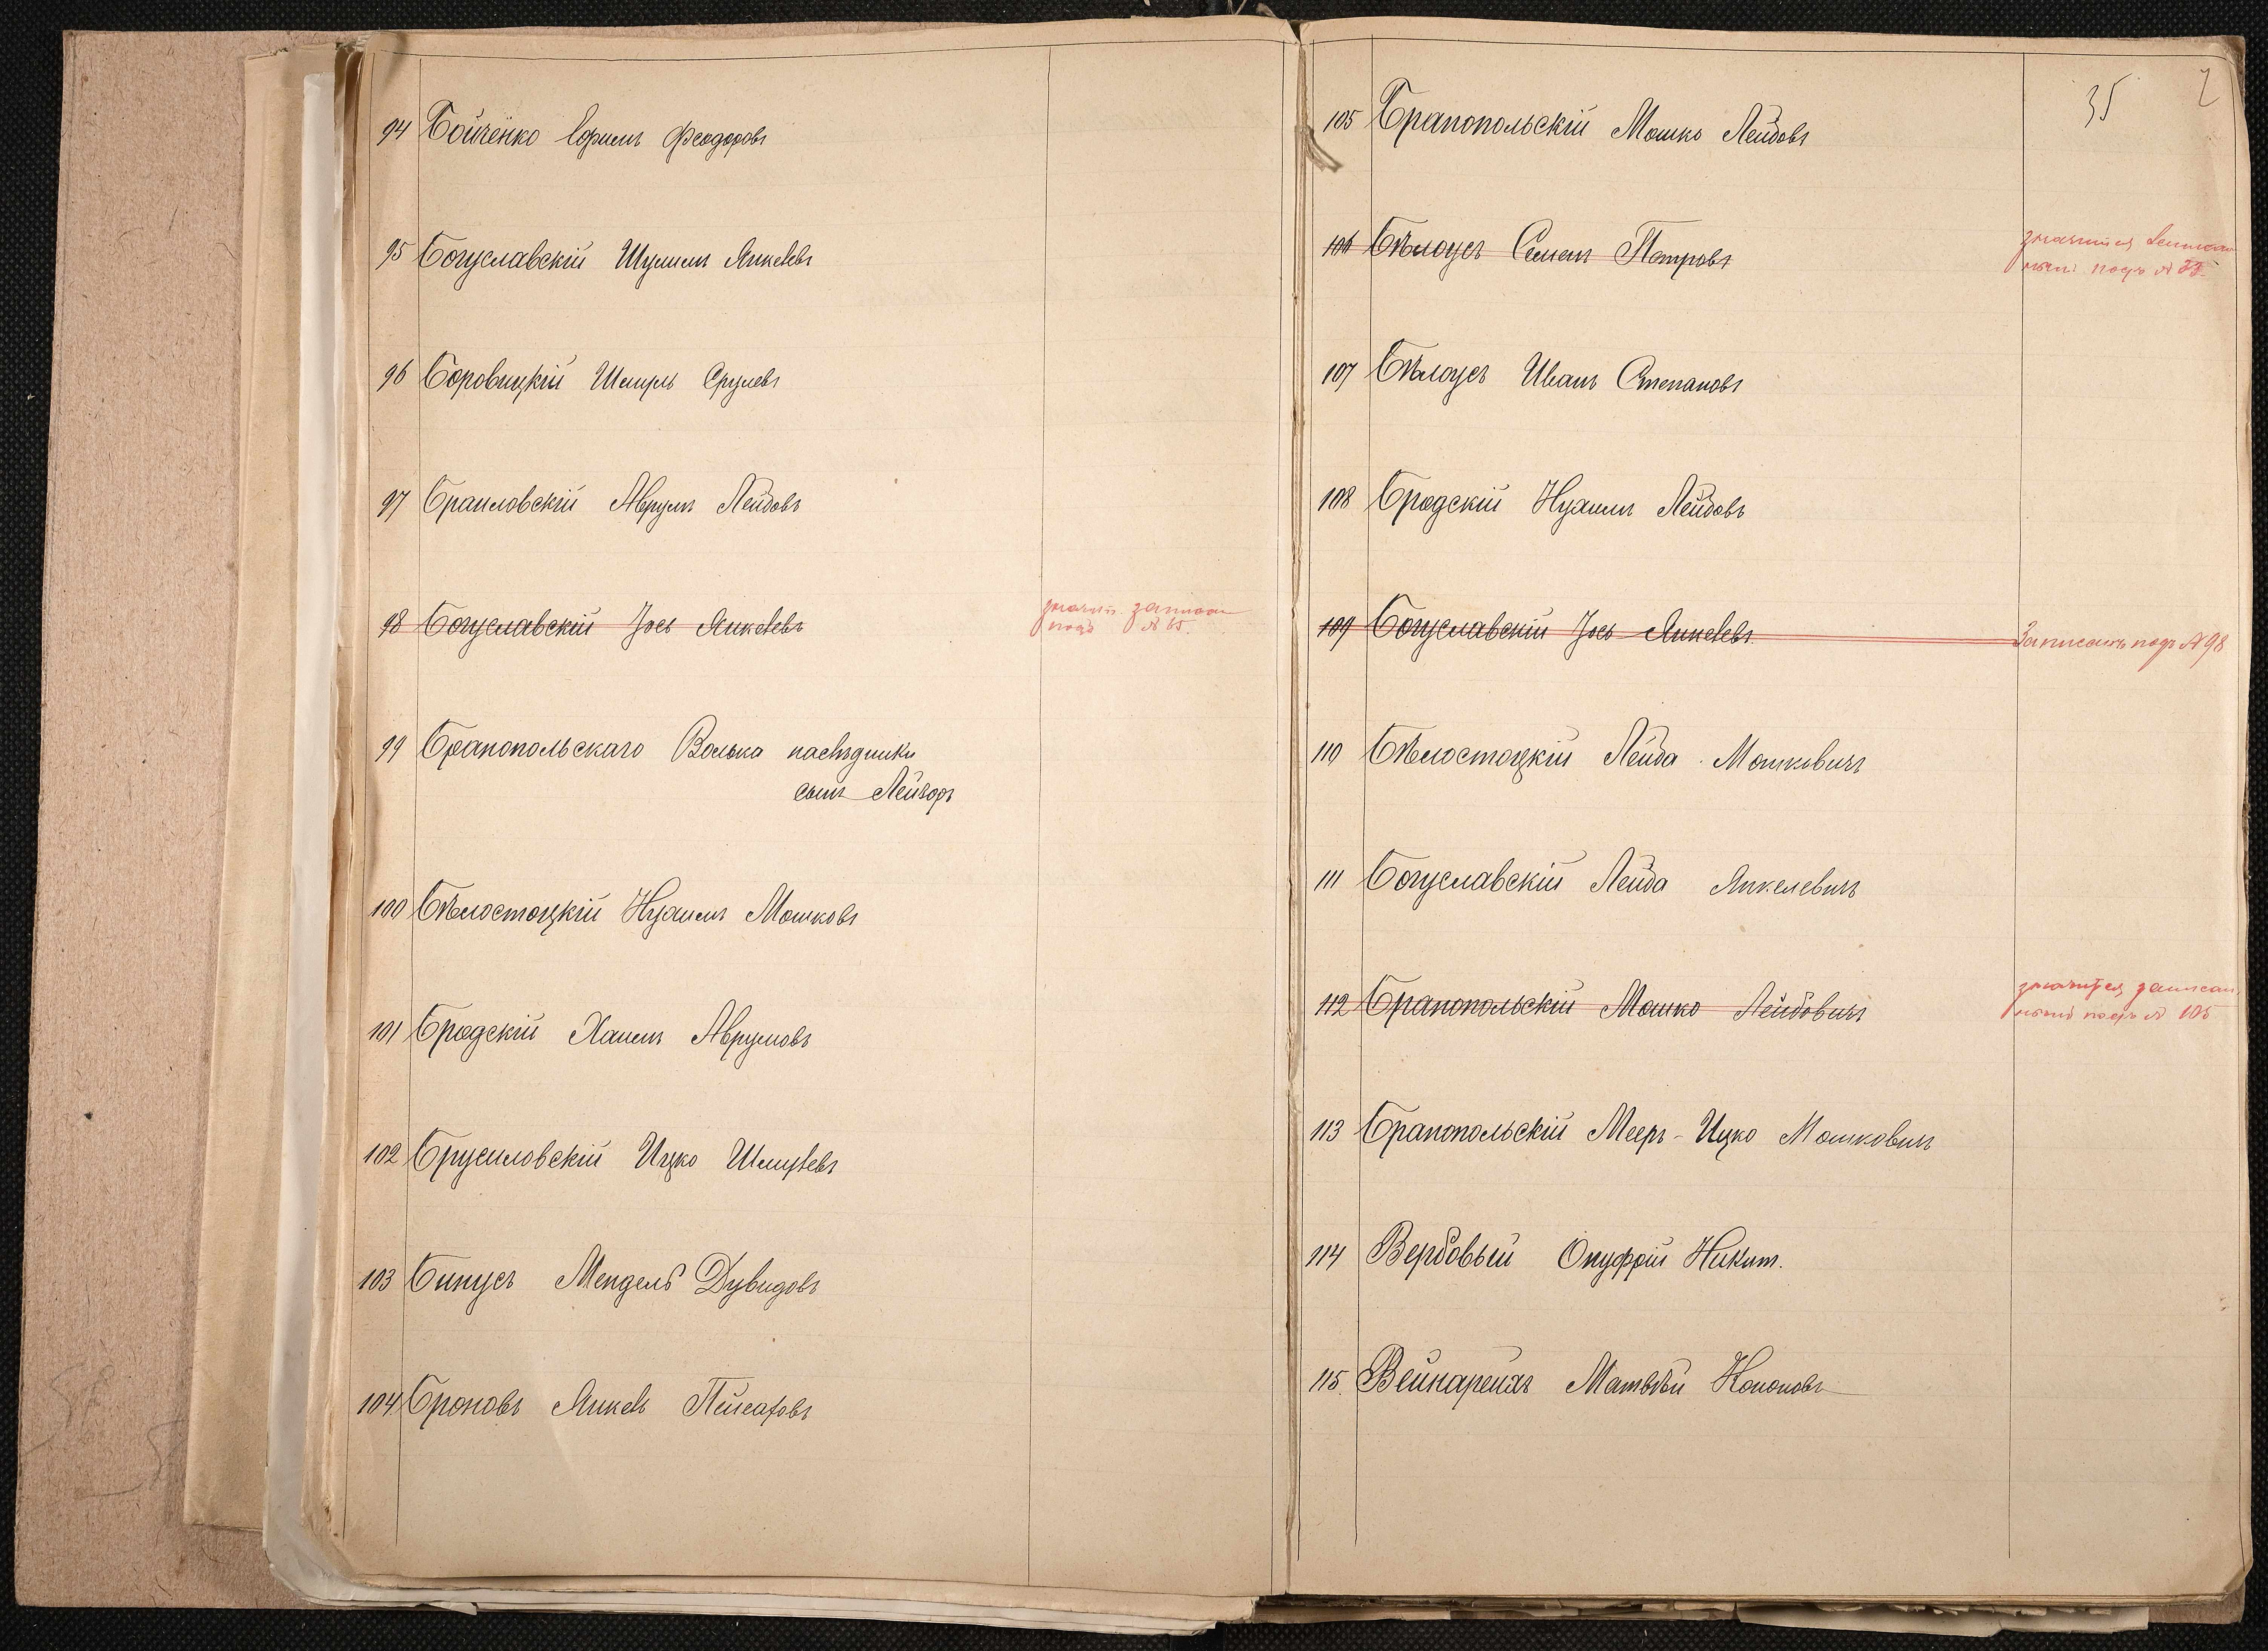 94 Бойченко Ефимъ Феодоровъ
95 Богуславскій Шулимъ Янкелевъ
96 Боровицкій Шмуль Срулевъ
97 Браиловскій Аврумъ Лейбовъ
98 Богуславскій Іось Янкелевъ
значит. записан
подъ № 65.
99 Бранопольскаго Волька наслѣдники
сынъ Лейзоръ
100 Бѣлостоцкій Нухимъ Мошковъ
101 Бродскій Хаимъ Аврумовъ
102 Брусиловскій Ицко Шмулевъ
103 Бинусъ Мендель Дувидовъ
104 Броновъ Янкель Пейсаховъ
35 2
105 Бранопольскій Мошко Лейбовъ
106 Бѣлоусъ Семенъ Петровъ
значится записан
нымъ подъ №
107 Бѣлоусъ Иванъ Степановъ
108 Бродскій Нухимъ Лейбовъ
109 Богуславскій Іось Янкелевъ
Записанъ подъ № 98
110 Бѣлостоцкій Лейба Мошковичъ
111 Богуславскій Лейба Янкелевичъ
112 Бранопольскій Мошко Лейбовичъ
значится записан
нымъ подъ № 105
113 Бранопольскій Мееръ-Ицко Мошковичъ
114 Вербовый Онуфрій Никит.
115. Вейнарейхъ Матвѣй Кононовъ